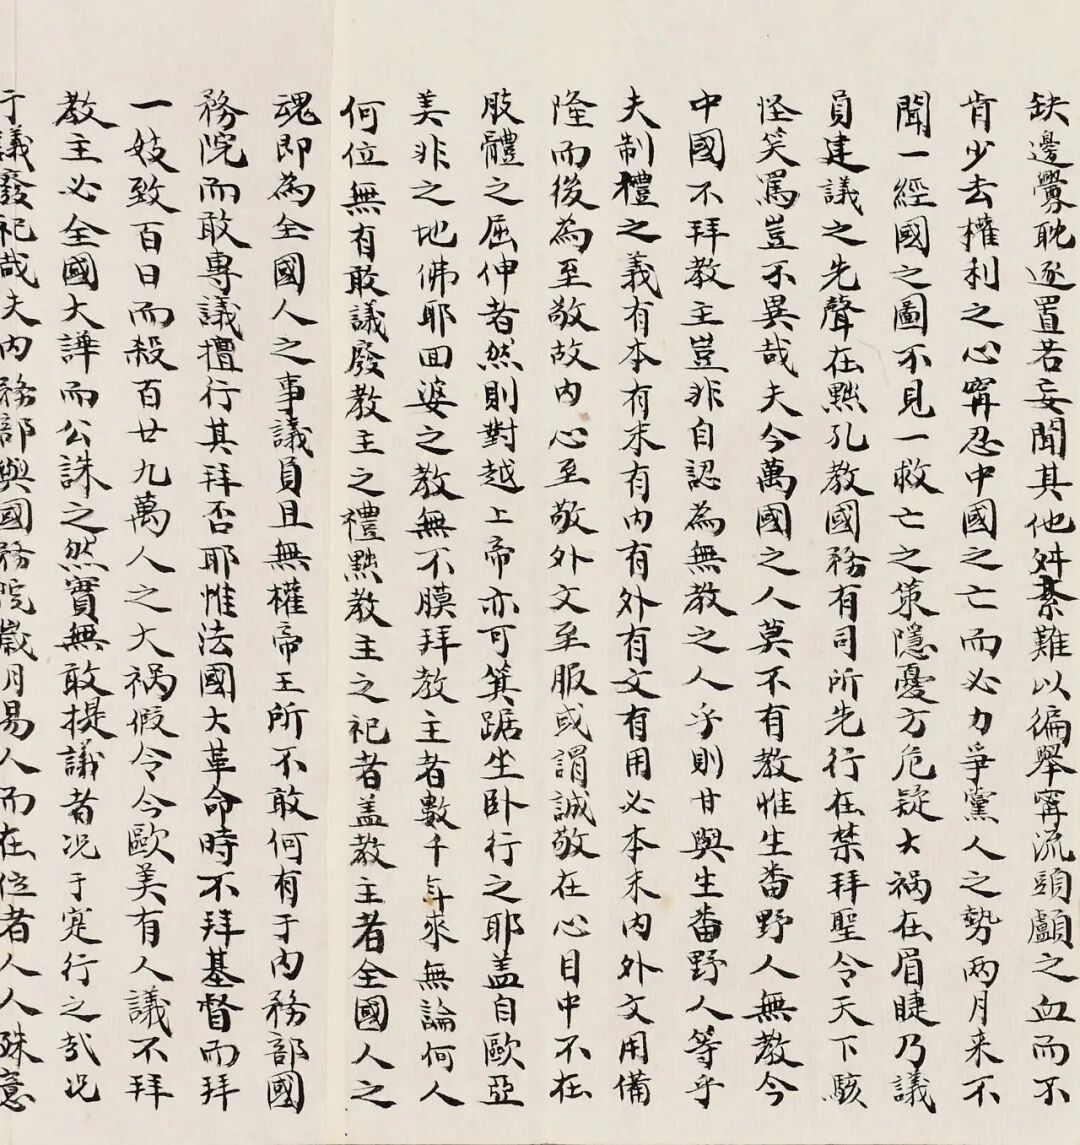 缺邊釁耽逐置若妄聞其他舛紊難以徧舉寧流頭顱之血而不
肯少去權利之心寧忍中國之亡而必力爭黨人之勢兩月来不
聞一經國之圖不見一救亡之策隱憂方危疑大禍在眉睫乃議
員建議之先聲在黜孔教國務有司所先行在禁拜聖令天下駭
怪笑罵豈不異哉夫今萬國之人莫不有教惟生番野人無教今
中國不拜教主豈非自認為無教之人乎則甘與生番野人等乎
夫制禮之義有本有末有内有外有文有用必本末内外文用備
隆而後為至敬故内心至敬外文至服或謂誠敬在心目中不在
肢體之屈伸者然則對越上帝亦可箕踞坐卧行之耶盖自歐亞
美非之地佛耶回婆之教無不膜拜教主者數千年来無論何人
何位無有敢議廢教主之禮黜教主之祀者盖教主者全國人之
魂即為全國人之事議員且無權帝王所不敢何有于内務部國
務院而敢專議擅行其拜否耶惟法國大革命時不拜基督而拜
一妓致百日而殺百廿九萬人之大禍假令今歐美有人議不拜
教主必全國大譁而公誅之然實無敢提議者况于寔行之哉况
于議廢祀哉夫内務部與國務院歲月易人而在位者人人殊意